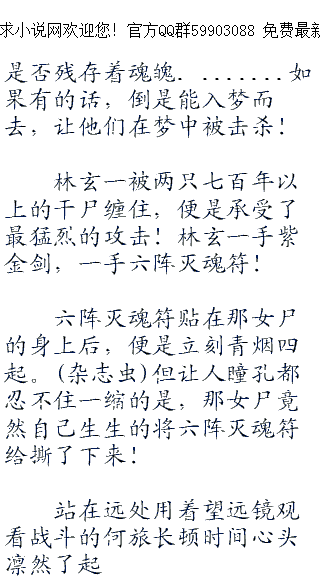 求小说网欢迎您！官方QQ群59903088 免费最新
是否残存着魂魄．．．．．．．．如
果有的话，倒是能入梦而
去，让他们在梦中被击杀！
林玄一被两只七百年以
上的干尸缠住，便是承受了
最猛烈的攻击！林玄一手紫
金剑，一手六阵灭魂符！
六阵灭魂符贴在那女尸
的身上后，便是立刻青烟四
起。(杂志虫)但让人瞳孔都
忍不住一缩的是，那女尸竟
然自己生生的将六阵灭魂符
给撕了下来！
站在远处用着望远镜观
看战斗的何旅长顿时间心头
凛然了起